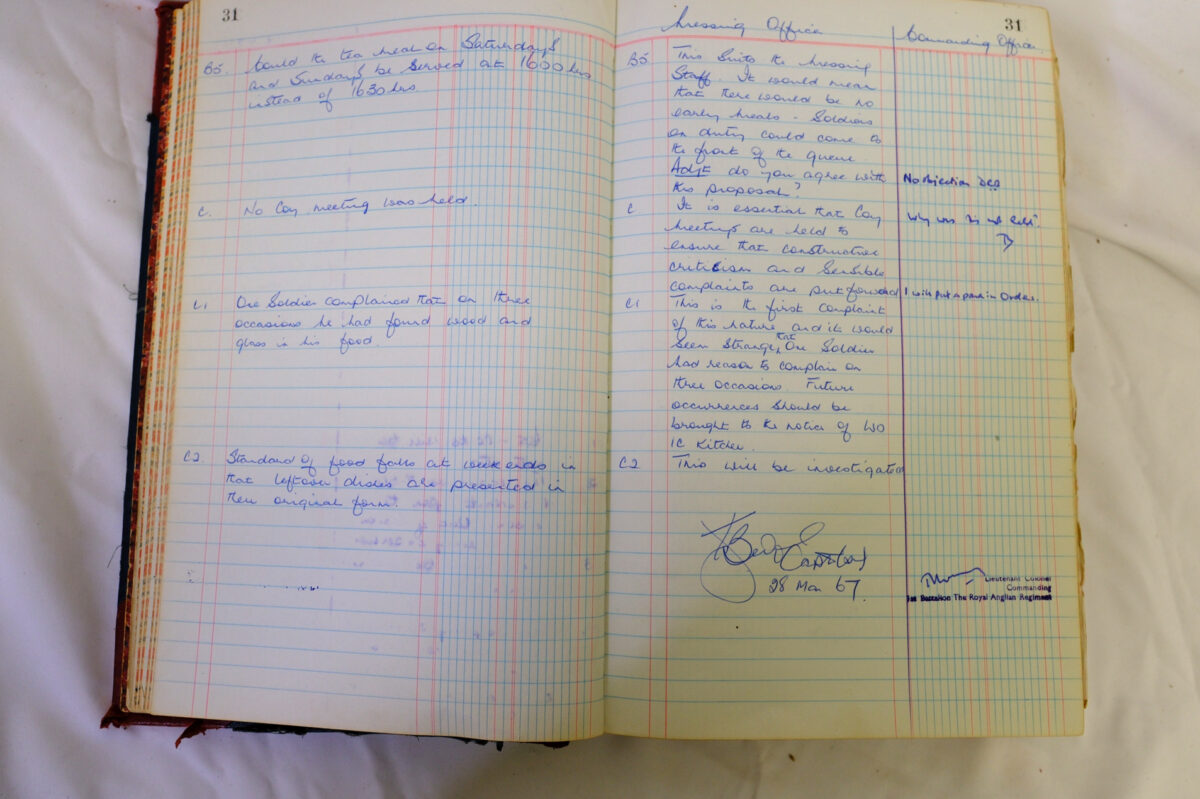 31
B5. Could the tea meal on Saturdays
and Sundays be served at 1600 hrs
instead of 1630 hrs
C. No Coy meeting was held.
C1 One Soldier complained that on three
occasions he had found wood and
glass in his food.
C2. Standard of food falls at weekends in
that leftover dishes are presented in
their original form.
31
Messing Officer
Commanding Officer
B5 This suits the messing
Staff. It would mean
that there would be no
early meals - Soldiers
on duty could come to
the front of the queue
Adjt do you agree with
this proposal?
No objection
C It is essential that Coy
meetings are held to
ensure that constructive
criticism and sensible
complaints are put forward
Why was this not held?
I will put a para in Orders.
C1 This is the first complaint
of this nature and it would
seem strange that One Soldier
had reason to complain on
three occasions. Future
occurrences should be
brought to the notice of WO
IC Kitchen.
C2 This will be investigated
28 Mar 67.
Lieutenant Colonel
Commanding
1st Battalion The Royal Anglian Regiment